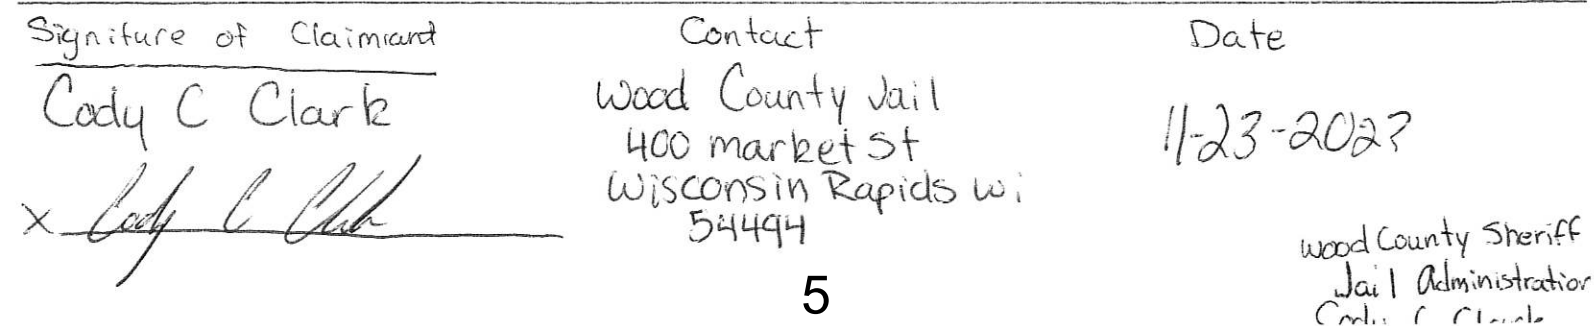 Signiture of Claimant
Cody C Clark
x Cody C Clark
Contact
Wood County Jail
400 market St
Wisconsin Rapids Wi
54494
Date
11-23-2023
Wood County Sheriff
Jail Administration
Cody C Clark
5